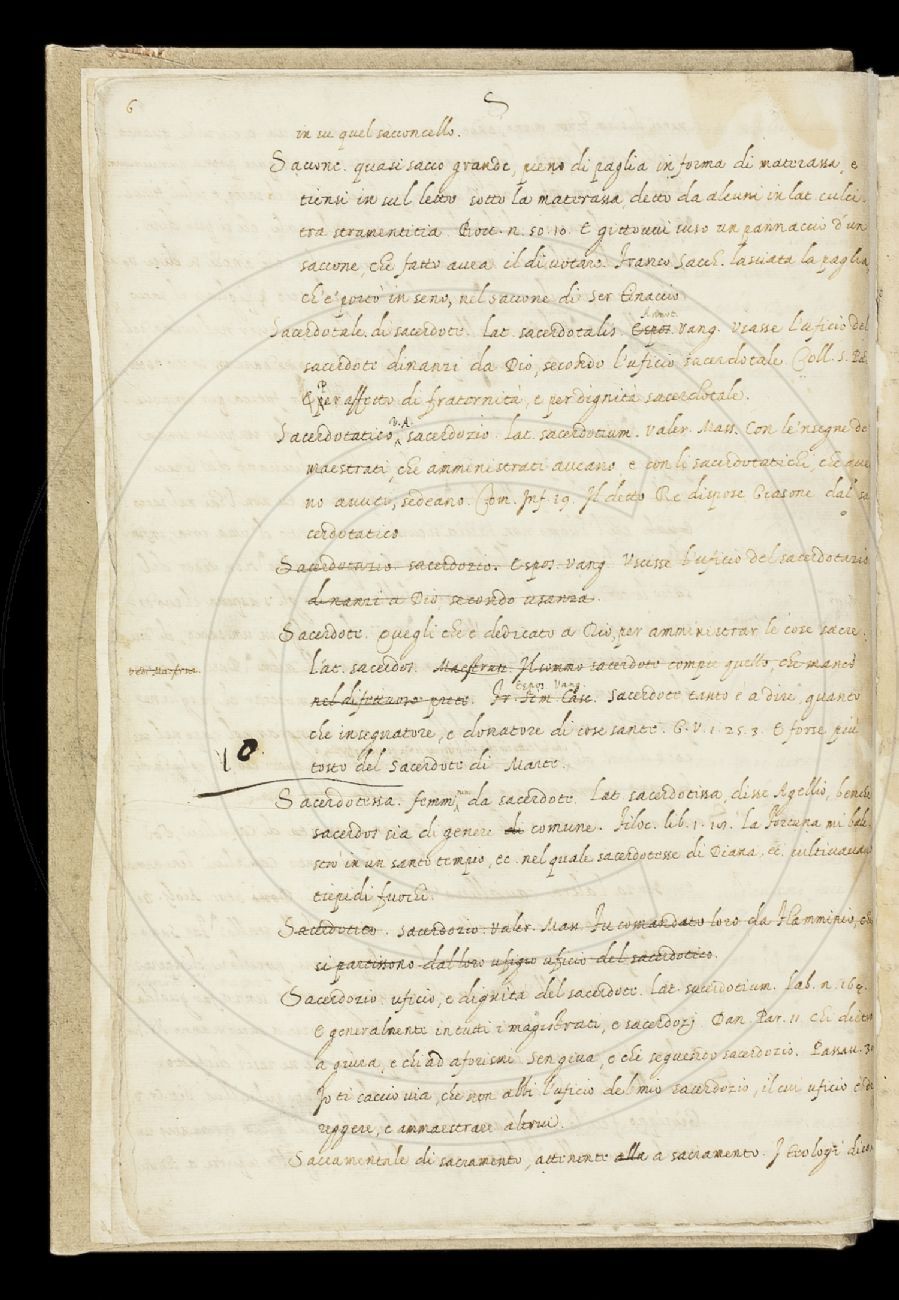 6
S
in su quel sacconcello.
Saccone. quasi sacco grande, pieno di paglia in forma di materassa, e
tiensi in sul letto sotto la materassa, detto da alcuni in lat. culci-
tra stramentitia. Bocc. n. 50. 10. E gittovvi suso un pannaccio d'un
saccone, che fatto avea il dì votare. Franco Sacch. lasciata la paglia
ch'e' portò in seno, nel saccone di Ser Tinaccio
Annot.
Sacerdotale. di sacerdote. lat. sacerdotalis. Espos. Vang. Usasse l'uficio del
sacerdote dinanzi da Dio, secondo l'uficio sacerdotale. Coll. S. Pad.
E per affetto di fraternità, e per dignità sacerdotale.
V. A.
Sacerdotatico, sacerdozio. lat. sacerdotium. Valer. Mass. Con le'nsegne de
maestrati, che amministrati aveano e con li sacerdotatichi, che ave
no avuti, sedeano. Com. Inf. 19. Il detto Re dispose Giasone dal sa
cerdotatico
Sacerdotario. sacerdozio. Espos. Vang. Uscisse l'uficio del sacerdotario
dinanzi a Dio, secondo usanza.
Sacerdote. Quegli che è dedicato a Dio, per amministrar le cose sacre.
vedi Maestruz.
lat. sacerdos. Maestruz. Il sommo sacerdote compie quello, che mancò
Espos. Vang.
nel difettuoso prete. Fr. Sim. Casc. Sacerdote tanto è a dire, quanto
che insegnatore, e donatore di cose sante. G. V. 1. 25. 3. E forse più
10.
tosto del Sacerdote di Marte.
Sacerdotessa. femm. da sacerdote. lat. sacerdotissa, disse Agellio, benche
sacerdos sia di genere di comune. Filoc. lib. 1. 19. La Fortuna mi bale-
strò in un santo tempio, ec. nel quale sacerdotesse di Diana, ec. cultivavan
tiepidi fuochi.
Sacerdotico. sacerdozio. Valer. Mass. Fu comandato loro da Flamminio, che
si partissono dal loro ufizio uficio del sacerdotico.
Sacerdozio. uficio, e dignità del sacerdote. lat. sacerdotium. Lab. n. 164.
E generalmente in tutti i magistrati, e sacerdozj. Dan. Par. 11. Chi dietro
a giura, e chi ad aforismi sen giva, e chi seguendo sacerdozio. Passav. 30
Io ti caccio via, che non abbi l'uficio del mio sacerdozio, il cui uficio è
reggere, e ammaestrare altrui.
Sacramentale di sacramento, attenente alla a sacramento. I Teologi dicon